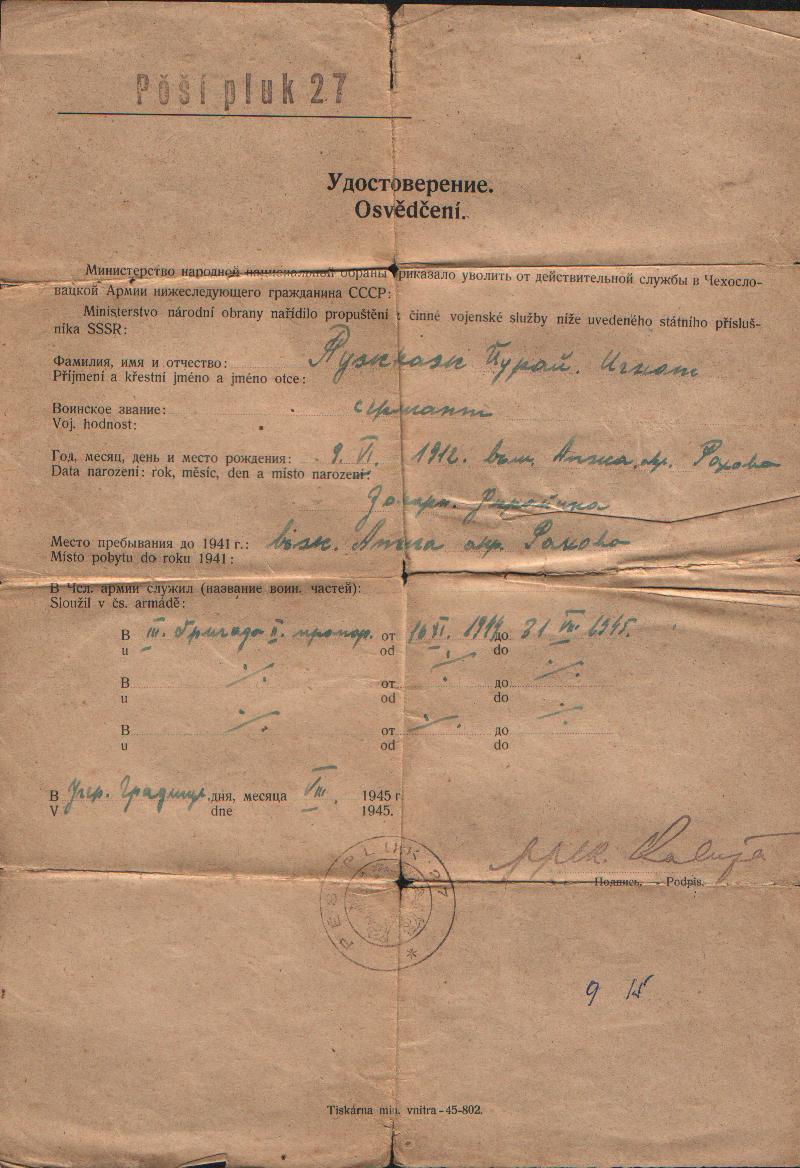 Pěší pluk 27
Удостоверение.
Osvědčení.
Министерство народной национальной обраны приказало уволить от действительной службы в Чехосло-
вацкой Армии нижеследующего гражданина СССР:
Ministerstvo národní obrany nařídilo propuštění z činné vojenské služby níže uvedeného státního přísluš-
níka SSSR:
Фамилия, имя и отчество: Юрай. Игнат
Příjmení a křestní jméno a jméno otce:
Воинское звание: сержант
Voj. hodnost:
Год, месяц, день и место рождения: 9. VI. 1912. Апша, окр. Рахово
Data narození: rok, měsíc, den a místo narození:
Место пребывания до 1941 г.: Апша окр. Рахово
Místo pobytu do roku 1941:
В Чсл. армии служил (название воин. частей):
Sloužil v čs. armádě:
В III. бригада II. от 16 XI. 1944 до 31 VIII 1945.
u od do
В ./. от ./. до ./.
u od do
В ./. от ./. до ./.
u od do
В Угр. Градище, дня, месяца VIII. 1945 г.
V dne 1945.
PĚŠÍ PLUK 27 *
Подпись. - Podpis.
9 15
Tiskárna min. vnitra-45-802.